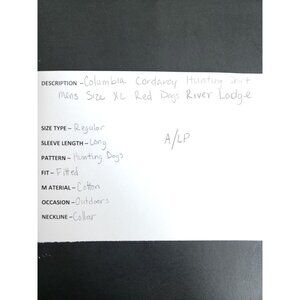 DESCRIPTION - Columbia Corduroy Hunting Shirt
Mens Size XL Red Dogs River Lodge
SIZE TYPE - Regular
SLEEVE LENGTH - Long
A/LP
PATTERN - Hunting Dogs
FIT - Fitted
MATERIAL - Cotton
OCCASION - Outdoors
NECKLINE - Collar